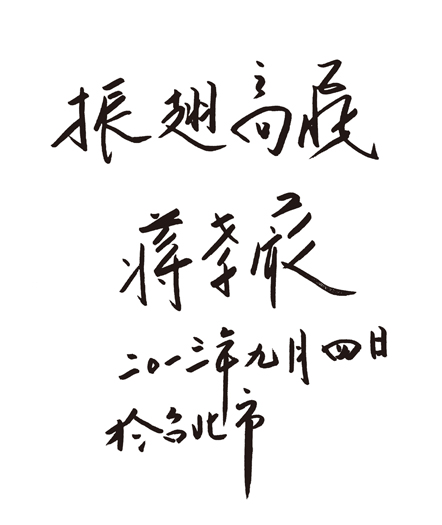 振翅高展
蒋孝严
二〇一三年九月四日
於台北市